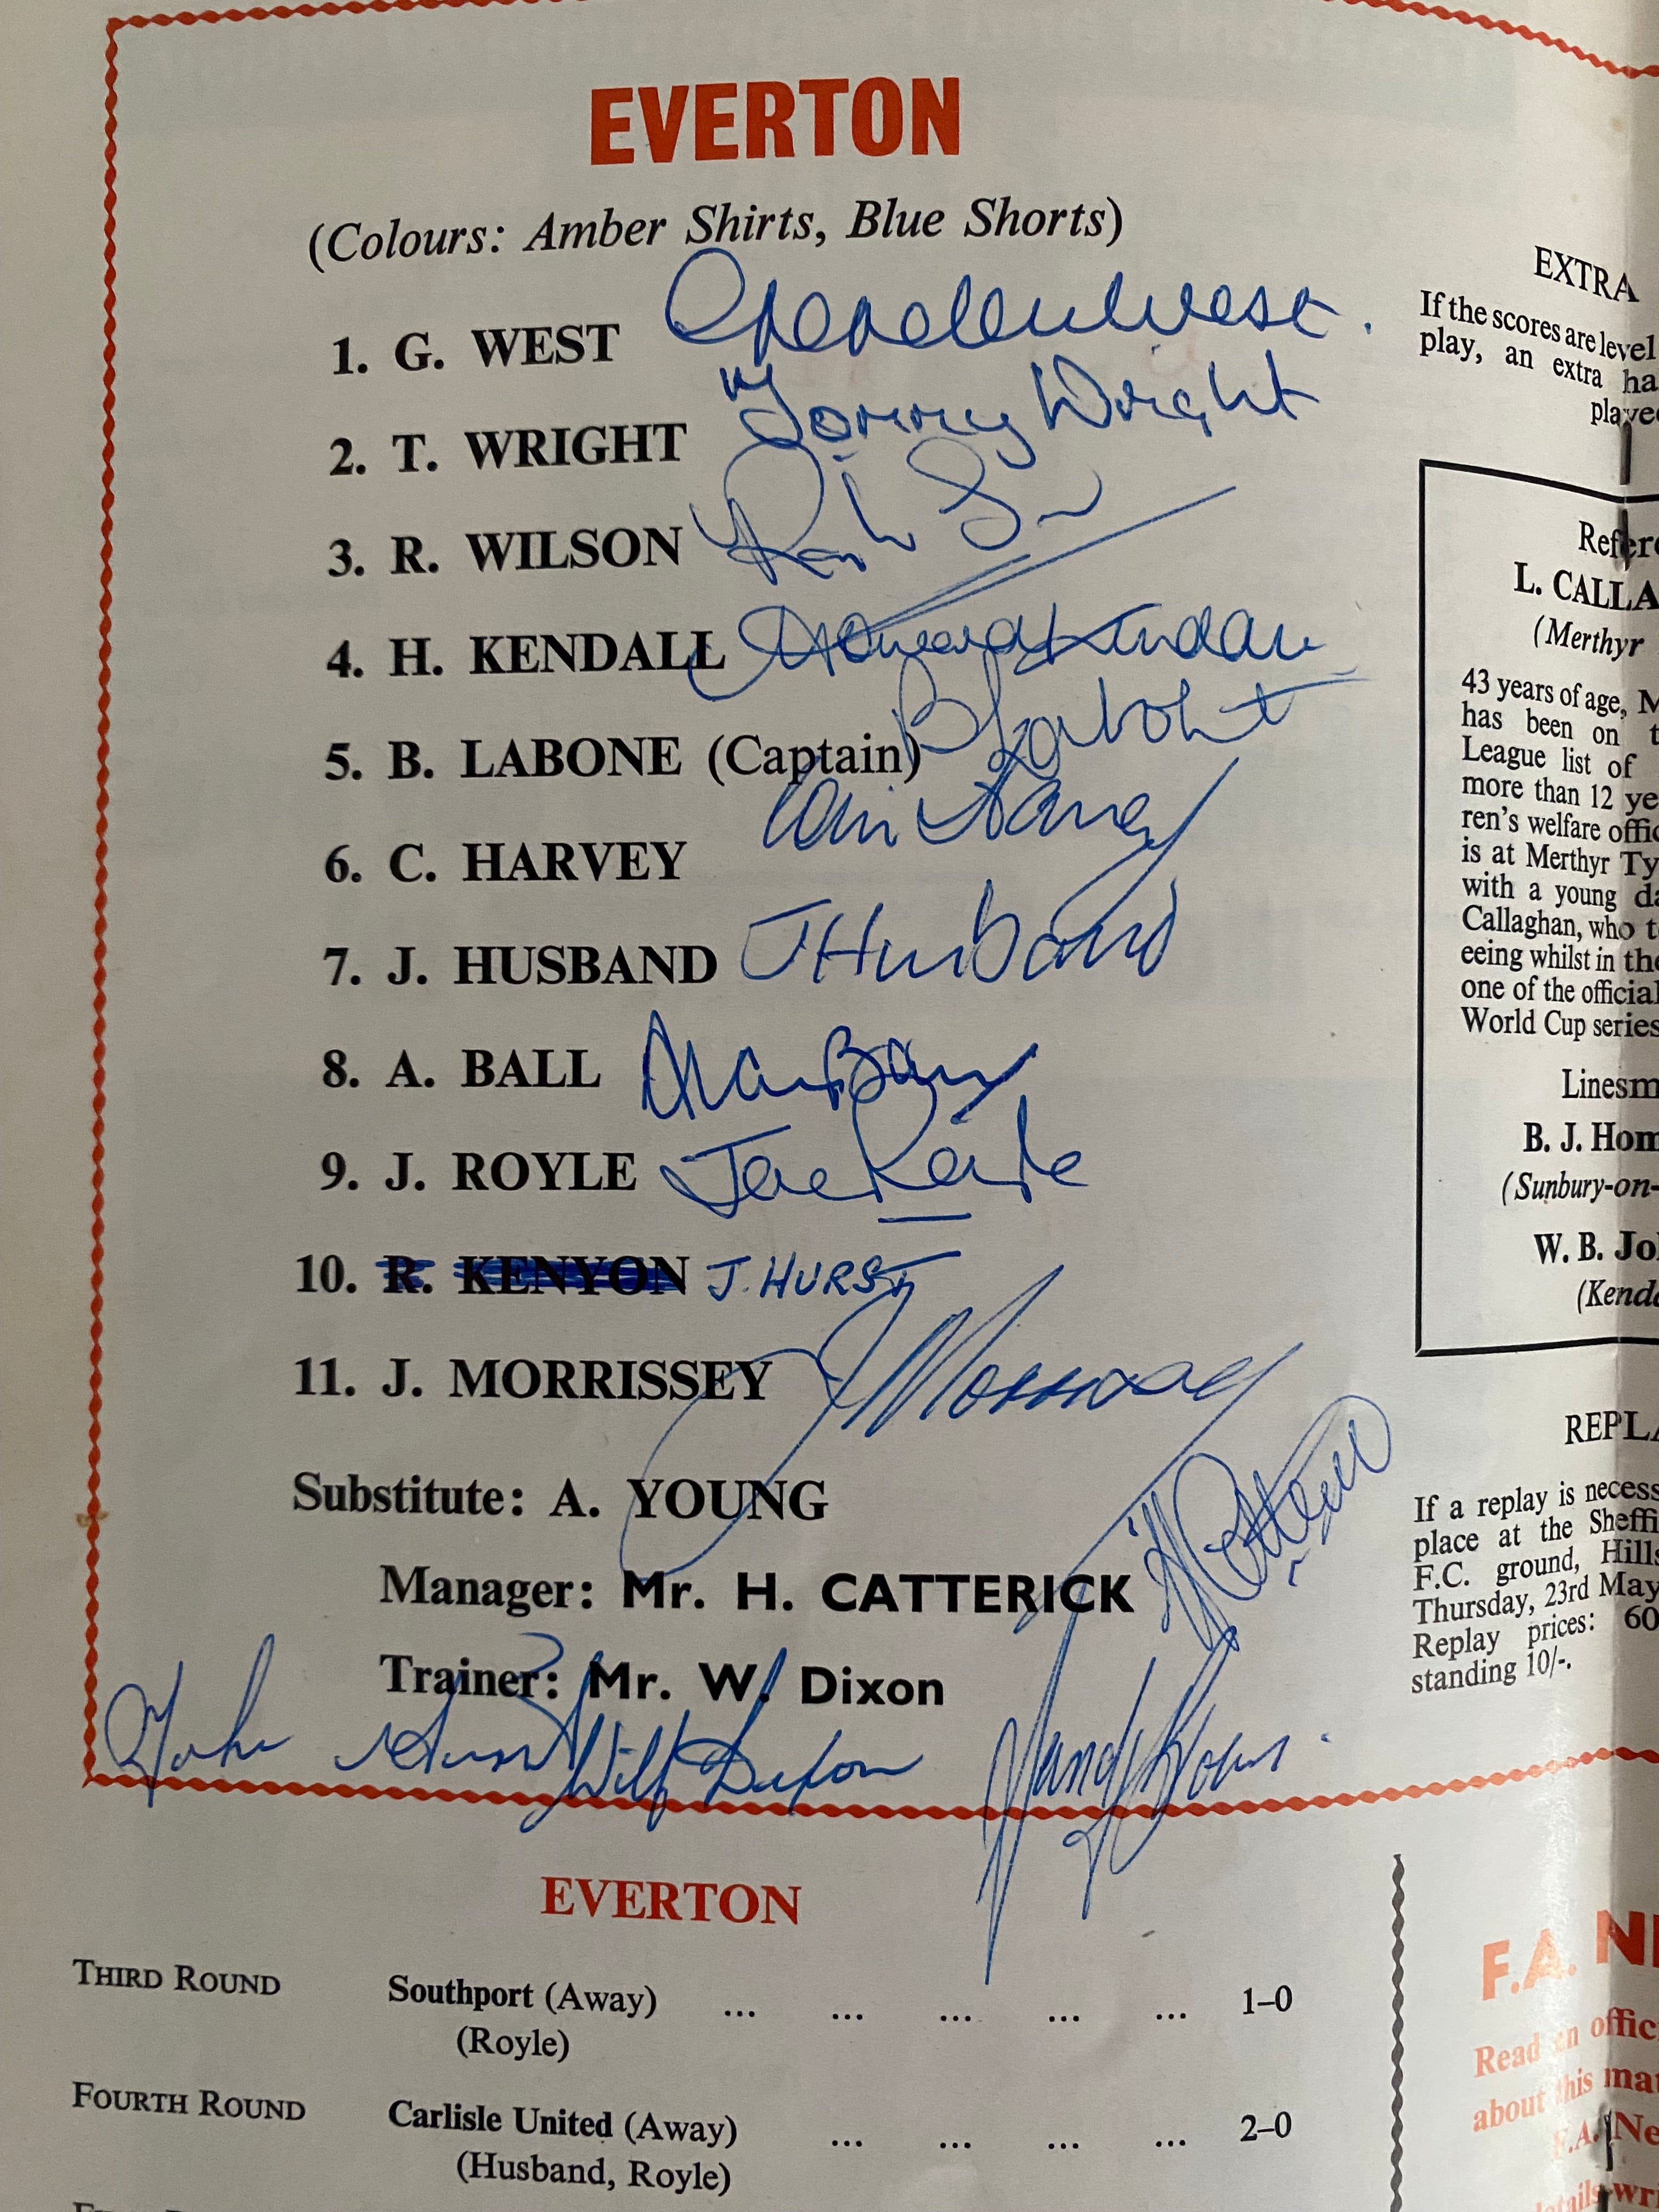 EVERTON
(Colours: Amber Shirts, Blue Shorts)
1. G. WEST Gordon West.
2. T. WRIGHT Tommy Wright
3. R. WILSON
4. H. KENDALL Howard Kendall
5. B. LABONE (Captain) B Labone
6. C. HARVEY Colin Harvey
7. J. HUSBAND J Husband
8. A. BALL Alan Ball
9. J. ROYLE Joe Royle
10. R. KENYON J. HURST
11. J. MORRISSEY J Morrissey
Substitute: A. YOUNG
Manager: Mr. H. CATTERICK H Catterick
Trainer: Mr. W. Dixon
John Hurst Wilf Dixon Sandy Brown.
EVERTON
THIRD ROUND Southport (Away) ... ... ... ... ... 1–0
(Royle)
FOURTH ROUND Carlisle United (Away) ... ... ... ... 2–0
(Husband, Royle)
EXTRA
If the scores are level
play, an extra ha
playe
Refere
L. CALLA
(Merthyr
43 years of age, M
has been on t
League list of
more than 12 ye
ren's welfare offic
is at Merthyr Ty
with a young da
Callaghan, who t
eeing whilst in the
one of the official
World Cup series
Linesm
B. J. Hom
(Sunbury-on-
W. B. Jo
(Kenda
REPLA
If a replay is necess
place at the Sheffi
F.C. ground, Hills
Thursday, 23rd May
Replay prices: 60
standing 10/-.
F.A. NE
Read an offic
about this mat
F.A. Ne